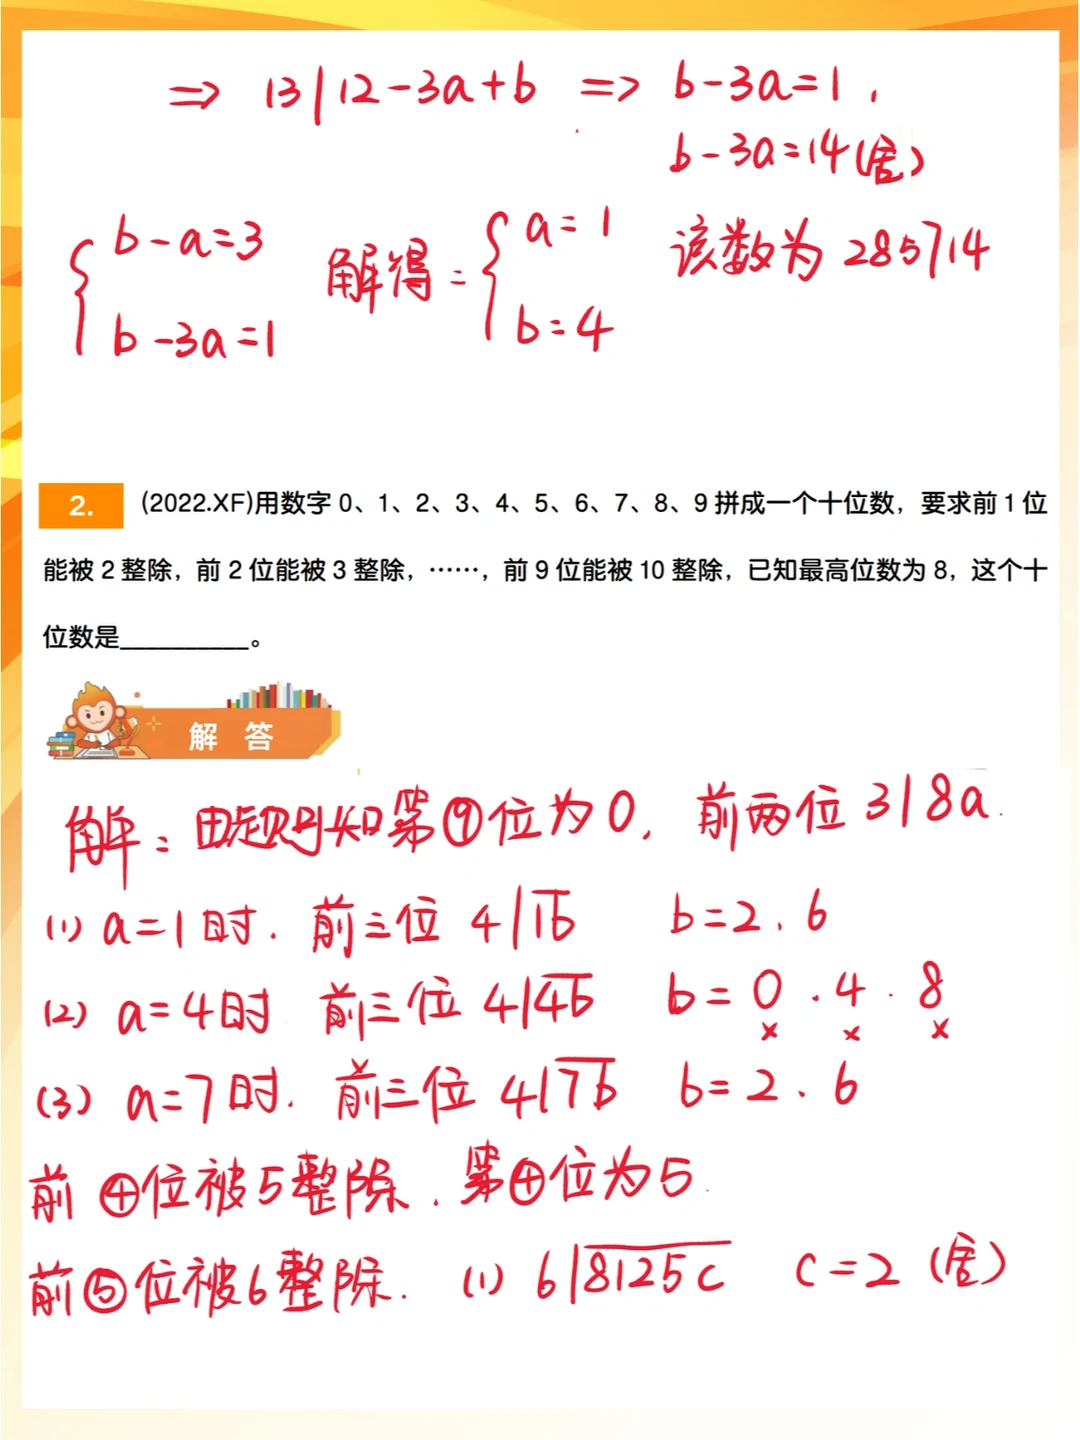 ⇒ 13|12-3a+b ⇒ b-3a=1，
b-3a=14(舍)
b-a=3 解得： a=1 该数为 285714
b-3a=1 b=4
2. (2022.XF)用数字 0、1、2、3、4、5、6、7、8、9 拼成一个十位数，要求前 1 位
能被 2 整除，前 2 位能被 3 整除，……，前 9 位能被 10 整除，已知最高位数为 8，这个十
位数是__________。
解 答
解：由题则知第⑨位为0，前两位 3|8a.
(1) a=1时. 前三位 4|1b b=2、6
(2) a=4时 前三位 4|4b b=0.4.8
× × ×
(3) a=7时. 前三位 4|7b b=2、6
前④位被5整除. 第④位为5.
前⑤位被6整除. (1) 6|8125c c=2 (舍)